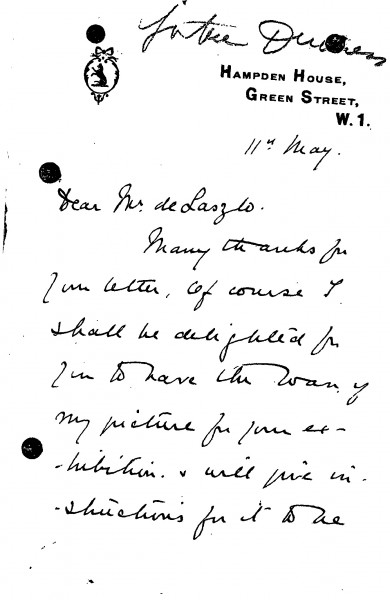 for the Duchess
HAMPDEN HOUSE,
GREEN STREET,
W.1.
11th May.
Dear Mr. de Laszlo.
Many thanks for
your letter, Of course I
shall be delighted for
you to have the loan of
my picture for your ex-
-hibition. & will give in-
-structions for it to be